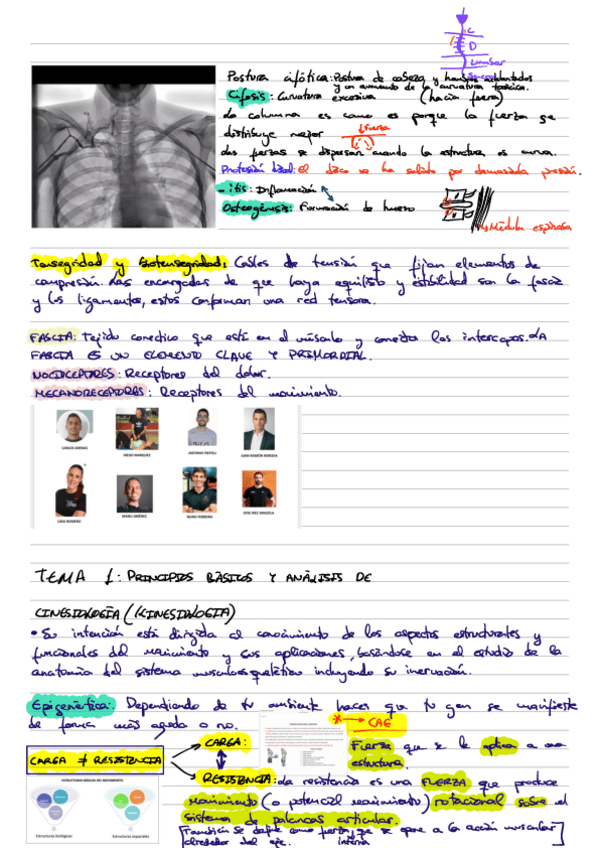 C
D
Lumbar
Postura cifótica: Postura de cabeza y hombros adelantados
y un aumento de la curvatura torácica.
Cifosis: Curvatura excesiva (hacia fuera)
La columna es como es porque la fuerza se
distribuye mejor
↓Fuerza
Las fuerzas se dispersan cuando la estructura es curva.
Protusión discal: el disco se ha salido por demasiada presión.
- itis: Inflamación
Osteogénesis: Formación de hueso
Médula espinosa
Tensegridad y Biotensegridad: Cables de tensión que fijan elementos de
compresión. Las encargadas de que haya equilibrio y estabilidad son la fascia
y los ligamentos, estos conforman una red tensora.
FASCIA: Tejido conectivo que está en el músculo y conecta los intercapos. LA
FASCIA ES UN ELEMENTO CLAVE Y PRIMORDIAL.
NOCICEPTORES: Receptores del dolor.
MECANORECEPTORES: Receptores del movimiento.
CARLOS ARENAS
DIEGO MARQUES
ANTONIO PIEPOLI
JUAN RAMÓN HEREDIA
LIDIA ROMERO
MANU JIMÉNEZ
NUNO FERREIRA
JOSE DIEZ ANGUILA
TEMA 1: PRINCIPIOS BÁSICOS Y ANÁLISIS DE
CINESIOLOGÍA (KINESIOLOGIA)
• Su intención está dirigida al conocimiento de los aspectos estructurales y
funcionales del movimiento y sus aplicaciones, basándose en el estudio de la
anatomía del sistema musculoesquelético incluyendo su inervación.
Epigenética: Dependiendo de tu ambiente haces que tu gen se manifieste
de forma más aguda o no.
* → CAE
CARGA:
Fuerza que se le aplica a una
estructura.
CARGA ≠ RESISTENCIA
RESISTENCIA: La resistencia es una FUERZA que produce
movimiento (o potencial movimiento) rotacional sobre el
sistema de palancas articular.
[También se define como fuerza que se opone a la acción muscular]
alrededor del eje. interna
ESTRUCTURAS BÁSICAS DEL MOVIMIENTO
Estructuras biológicas
Estructuras espaciales